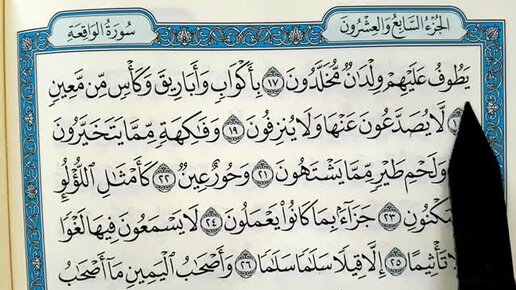 الجُزْءُ السَّابِعُ وَالْعِشْرُونَ
سُورَةُ الوَاقِعَةِ
يَطُوفُ عَلَيْهِمْ وِلْدَٰنٌ مُّخَلَّدُونَ ١٧ بِأَكْوَابٍ وَأَبَارِيقَ وَكَأْسٍ مِّن مَّعِينٍ
لَّا يُصَدَّعُونَ عَنْهَا وَلَا يُنزِفُونَ ١٩ وَفَٰكِهَةٍ مِّمَّا يَتَخَيَّرُونَ
وَلَحْمِ طَيْرٍ مِّمَّا يَشْتَهُونَ ٢١ وَحُورٌ عِينٌ ٢٢ كَأَمْثَٰلِ ٱللُّؤْلُوِٕ
٢٣ جَزَآءًۢ بِمَا كَانُوا۟ يَعْمَلُونَ ٢٤ لَا يَسْمَعُونَ فِيهَا لَغْوًا
تَأْثِيمًا ٢٥ إِلَّا قِيلًا سَلَٰمًا سَلَٰمًا ٢٦ وَأَصْحَٰبُ ٱلْيَمِينِ مَآ أَصْحَٰبُ